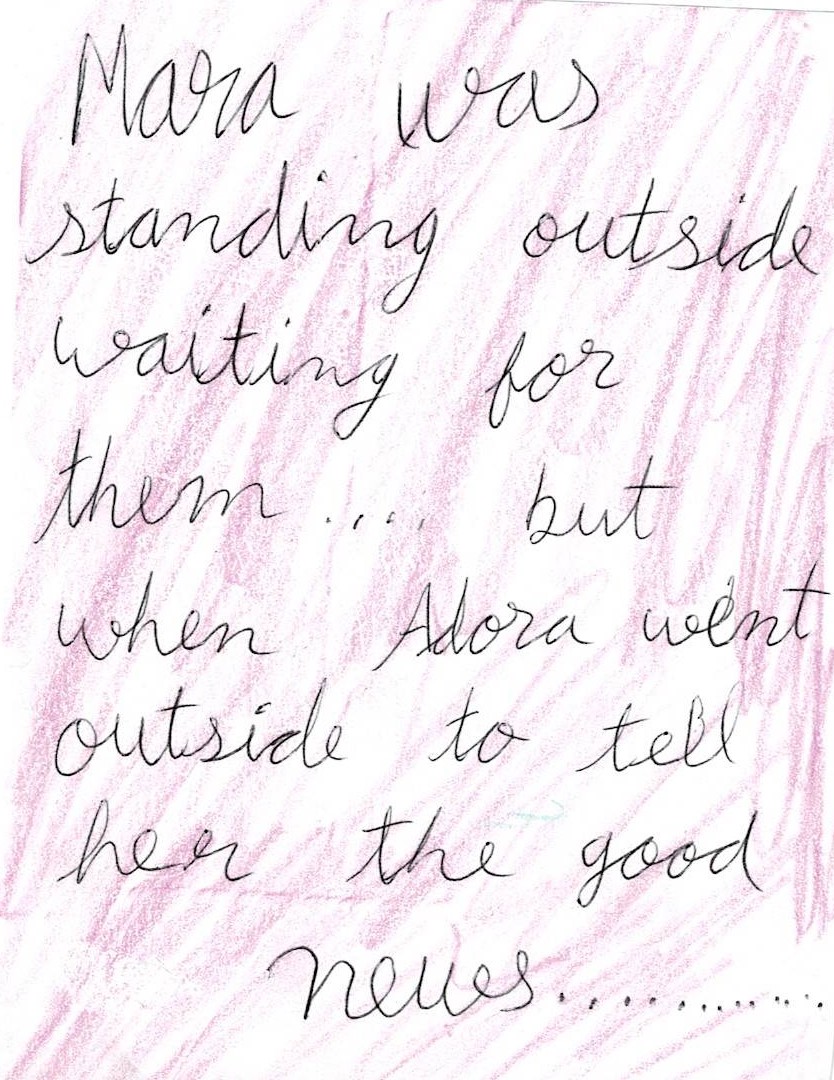 Mara was
standing outside
waiting for
them .... but
when Adora went
outside to tell
her the good
news..............